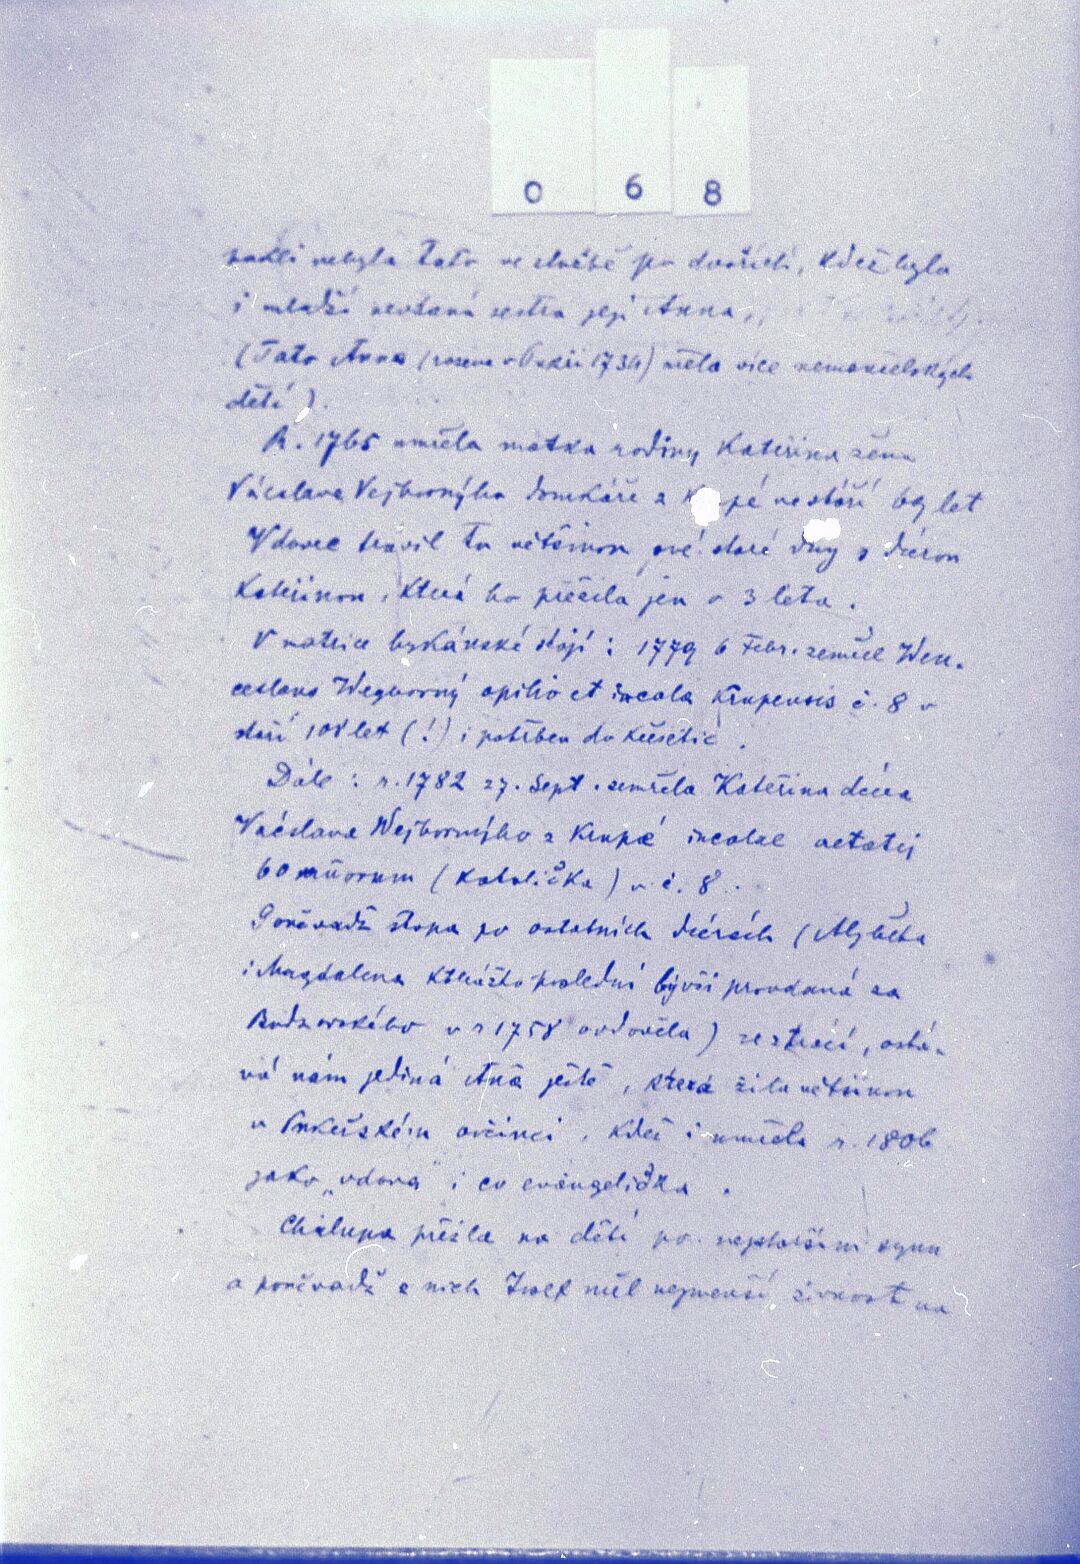 0 6 8
nebyla tato ve službě po dvořích, kdež byla
i mladší sestra její Anna,
(Tato Anna (rozena v 1734) měla více nemanželských
dětí).
R. 1765 umřela matka rodiny Kateřina žena
Václava Vejborného domkáře z pé ve stáří 69 let
Vdovec trávil tu většinou své staré dny s dcerou
Kateřinou, která ho přežila jen o 3 leta.
V matrice stojí: 1779 6 Febr. zemřel Wen-
ceslaus Wegworný opilio et incola Krupensis č. 8 v
stáří 108 let (!) i pohřben do Křešetic.
Dále: r. 1782 27. Sept. zemřela Kateřina dcera
Václava Wejborného z Krupé incolae aetatej
60 (katolička) v č. 8.
Poněvadž stopa po ostatních dcerách (Alžběta
i Magdalena kterážto poslední bývši provdaná za
v r 1758 ovdověla) se ztrácí, ostá-
vá nám jediná Anna ještě, která žila většinou
v ovčinci, kdež i umřela r. 1806
jako „vdova" i co evangelička.
Chalupa přešla na děti po nejstarším synu
a poněvadž z nich Josef měl nejmenší živnost na